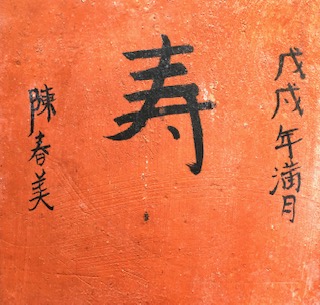 戊戌年满月
寿
陳春美